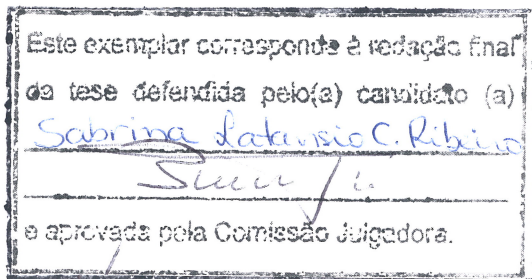 Este exemplar corresponde à redação final
da tese defendida pelo(a) candidato (a)
Sabrina C. Ribeiro
e aprovada pela Comissão Julgadora.